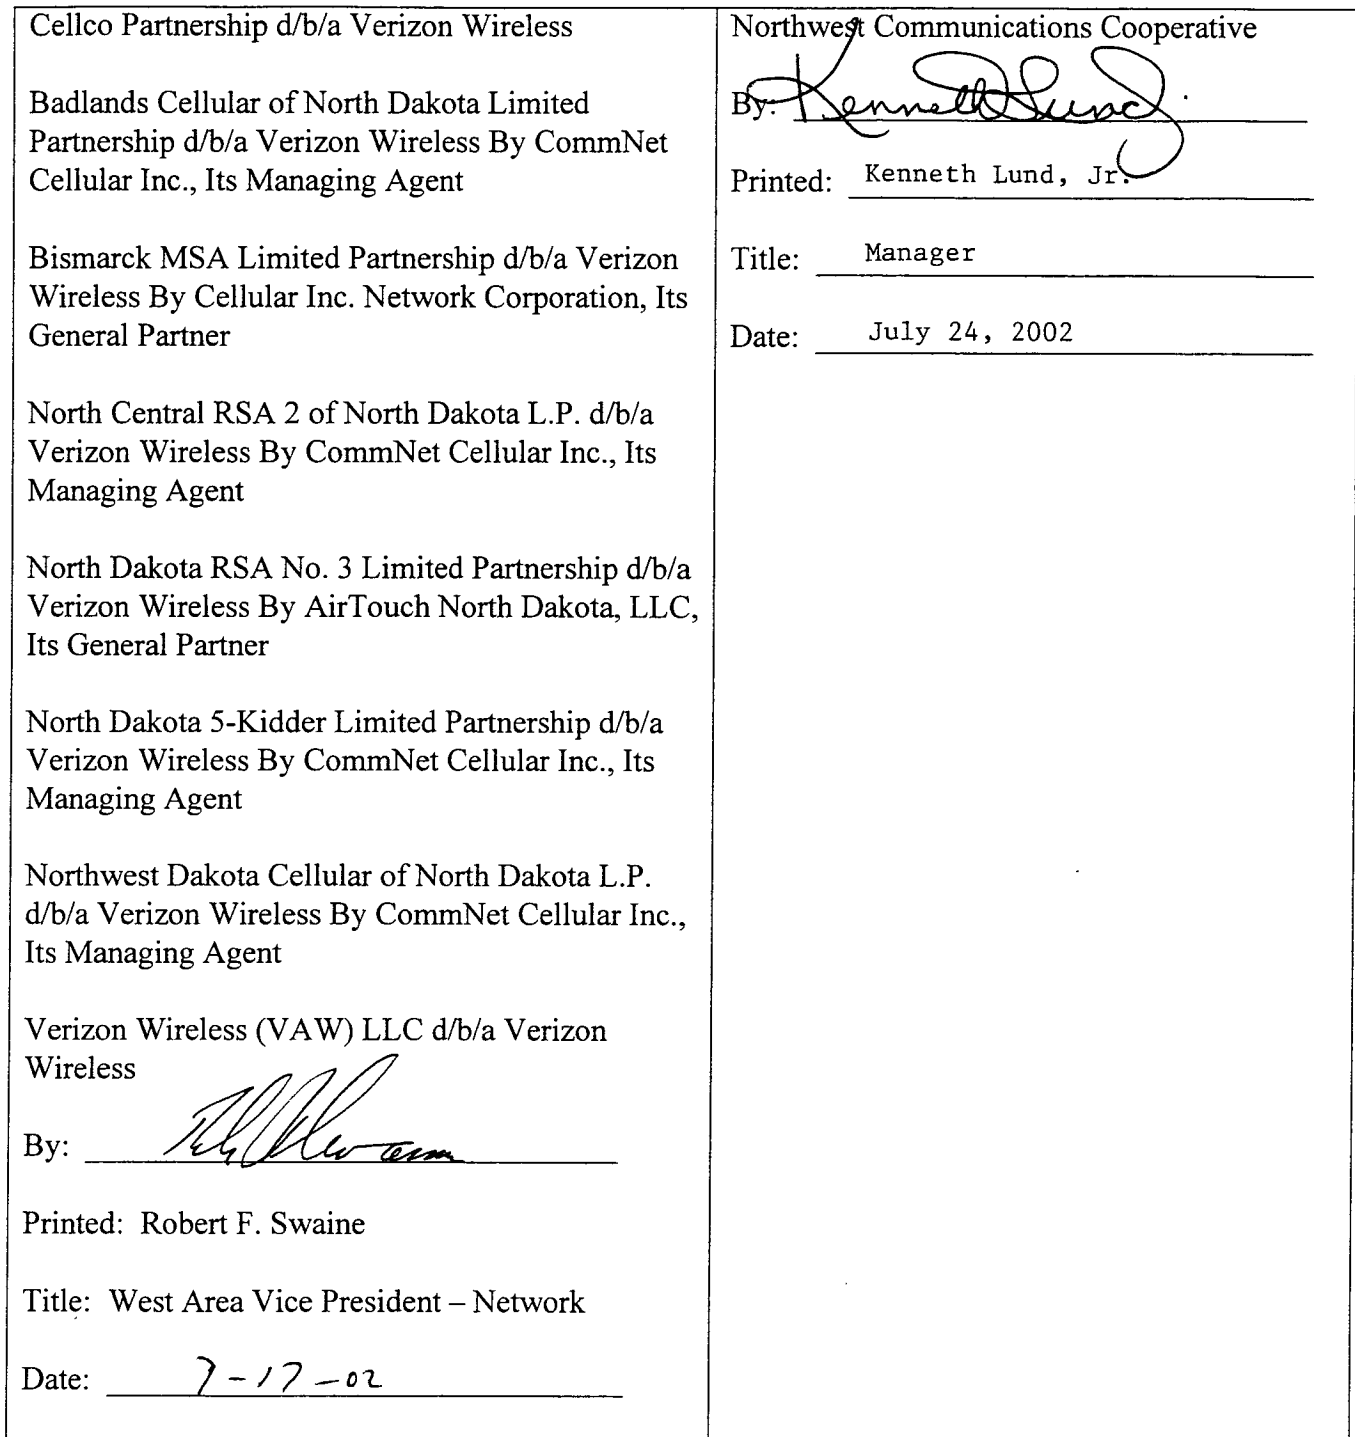 Cellco Partnership d/b/a Verizon Wireless
Badlands Cellular of North Dakota Limited
Partnership d/b/a Verizon Wireless By CommNet
Cellular Inc., Its Managing Agent
Bismarck MSA Limited Partnership d/b/a Verizon
Wireless By Cellular Inc. Network Corporation, Its
General Partner
North Central RSA 2 of North Dakota L.P. d/b/a
Verizon Wireless By CommNet Cellular Inc., Its
Managing Agent
North Dakota RSA No. 3 Limited Partnership d/b/a
Verizon Wireless By AirTouch North Dakota, LLC,
Its General Partner
North Dakota 5-Kidder Limited Partnership d/b/a
Verizon Wireless By CommNet Cellular Inc., Its
Managing Agent
Northwest Dakota Cellular of North Dakota L.P.
d/b/a Verizon Wireless By CommNet Cellular Inc.,
Its Managing Agent
Verizon Wireless (VAW) LLC d/b/a Verizon
Wireless
By:
Printed: Robert F. Swaine
Title: West Area Vice President – Network
Date: 7-17-02
Northwest Communications Cooperative
By: Kenneth Lund Jr.
Printed: Kenneth Lund, Jr.
Title: Manager
Date: July 24, 2002